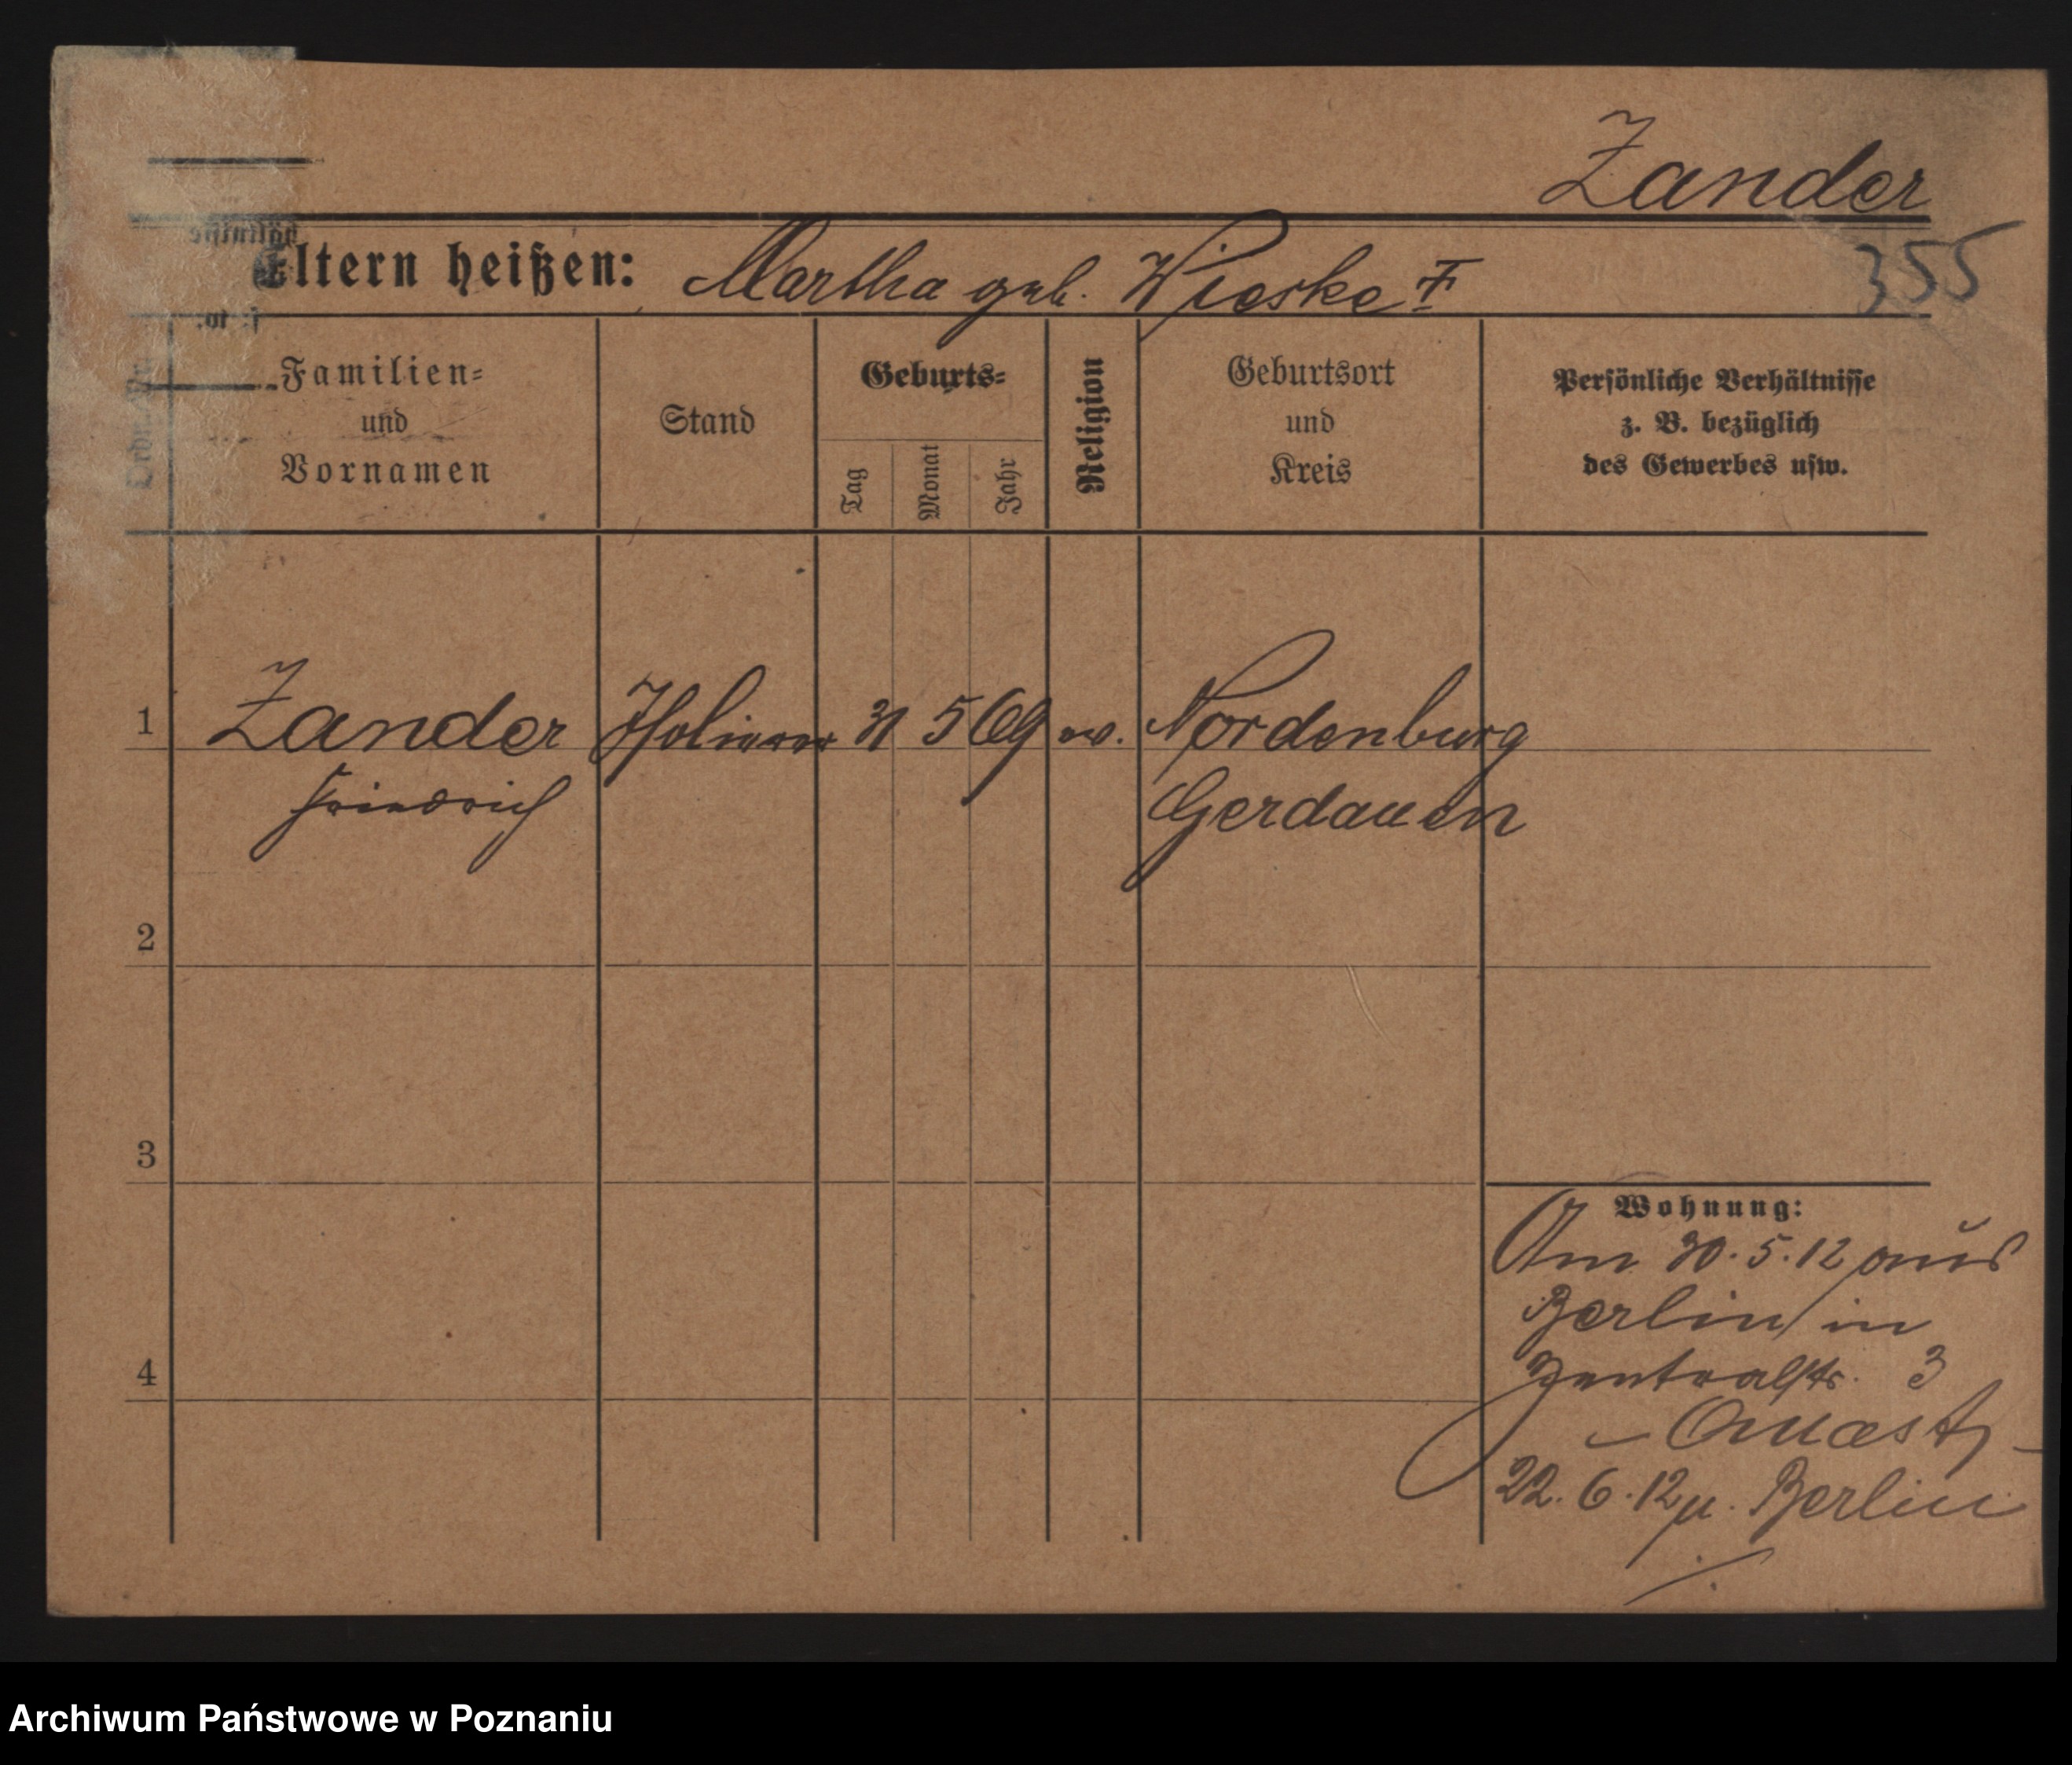 Zander
Eltern heißen: Martha geb. Wieske †
355
Familien=
und
Vornamen
Stand
Geburts=
Tag
Monat
Jahr
Religion
Geburtsort
und
Kreis
Persönliche Verhältnisse
z. B. bezüglich
des Gewerbes usw.
1 Zander 31 5 69 ev. Nordenburg
Friedrich Gerdauen
2
3
4
Wohnung:
Am 30.5.12 aus
Berlin in
Zentralstr. 3
22.6.12 n. Berlin
Archiwum Państwowe w Poznaniu